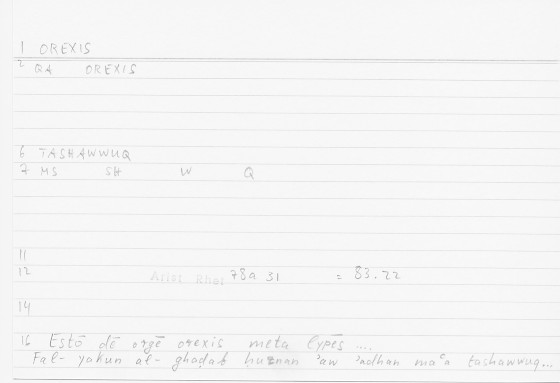 1 OREXIS
2 QA OREXIS
6 TASHAWWUQ
7 MS SH W Q
11
12 Arist Rhet 78a 31 = 83.22
14
16 Estō dē orgē orexis meta lypēs ....
Fal- yakun al- ghaḍab ḥuznan ʾaw ʾadhan maʿa tashawwuq...